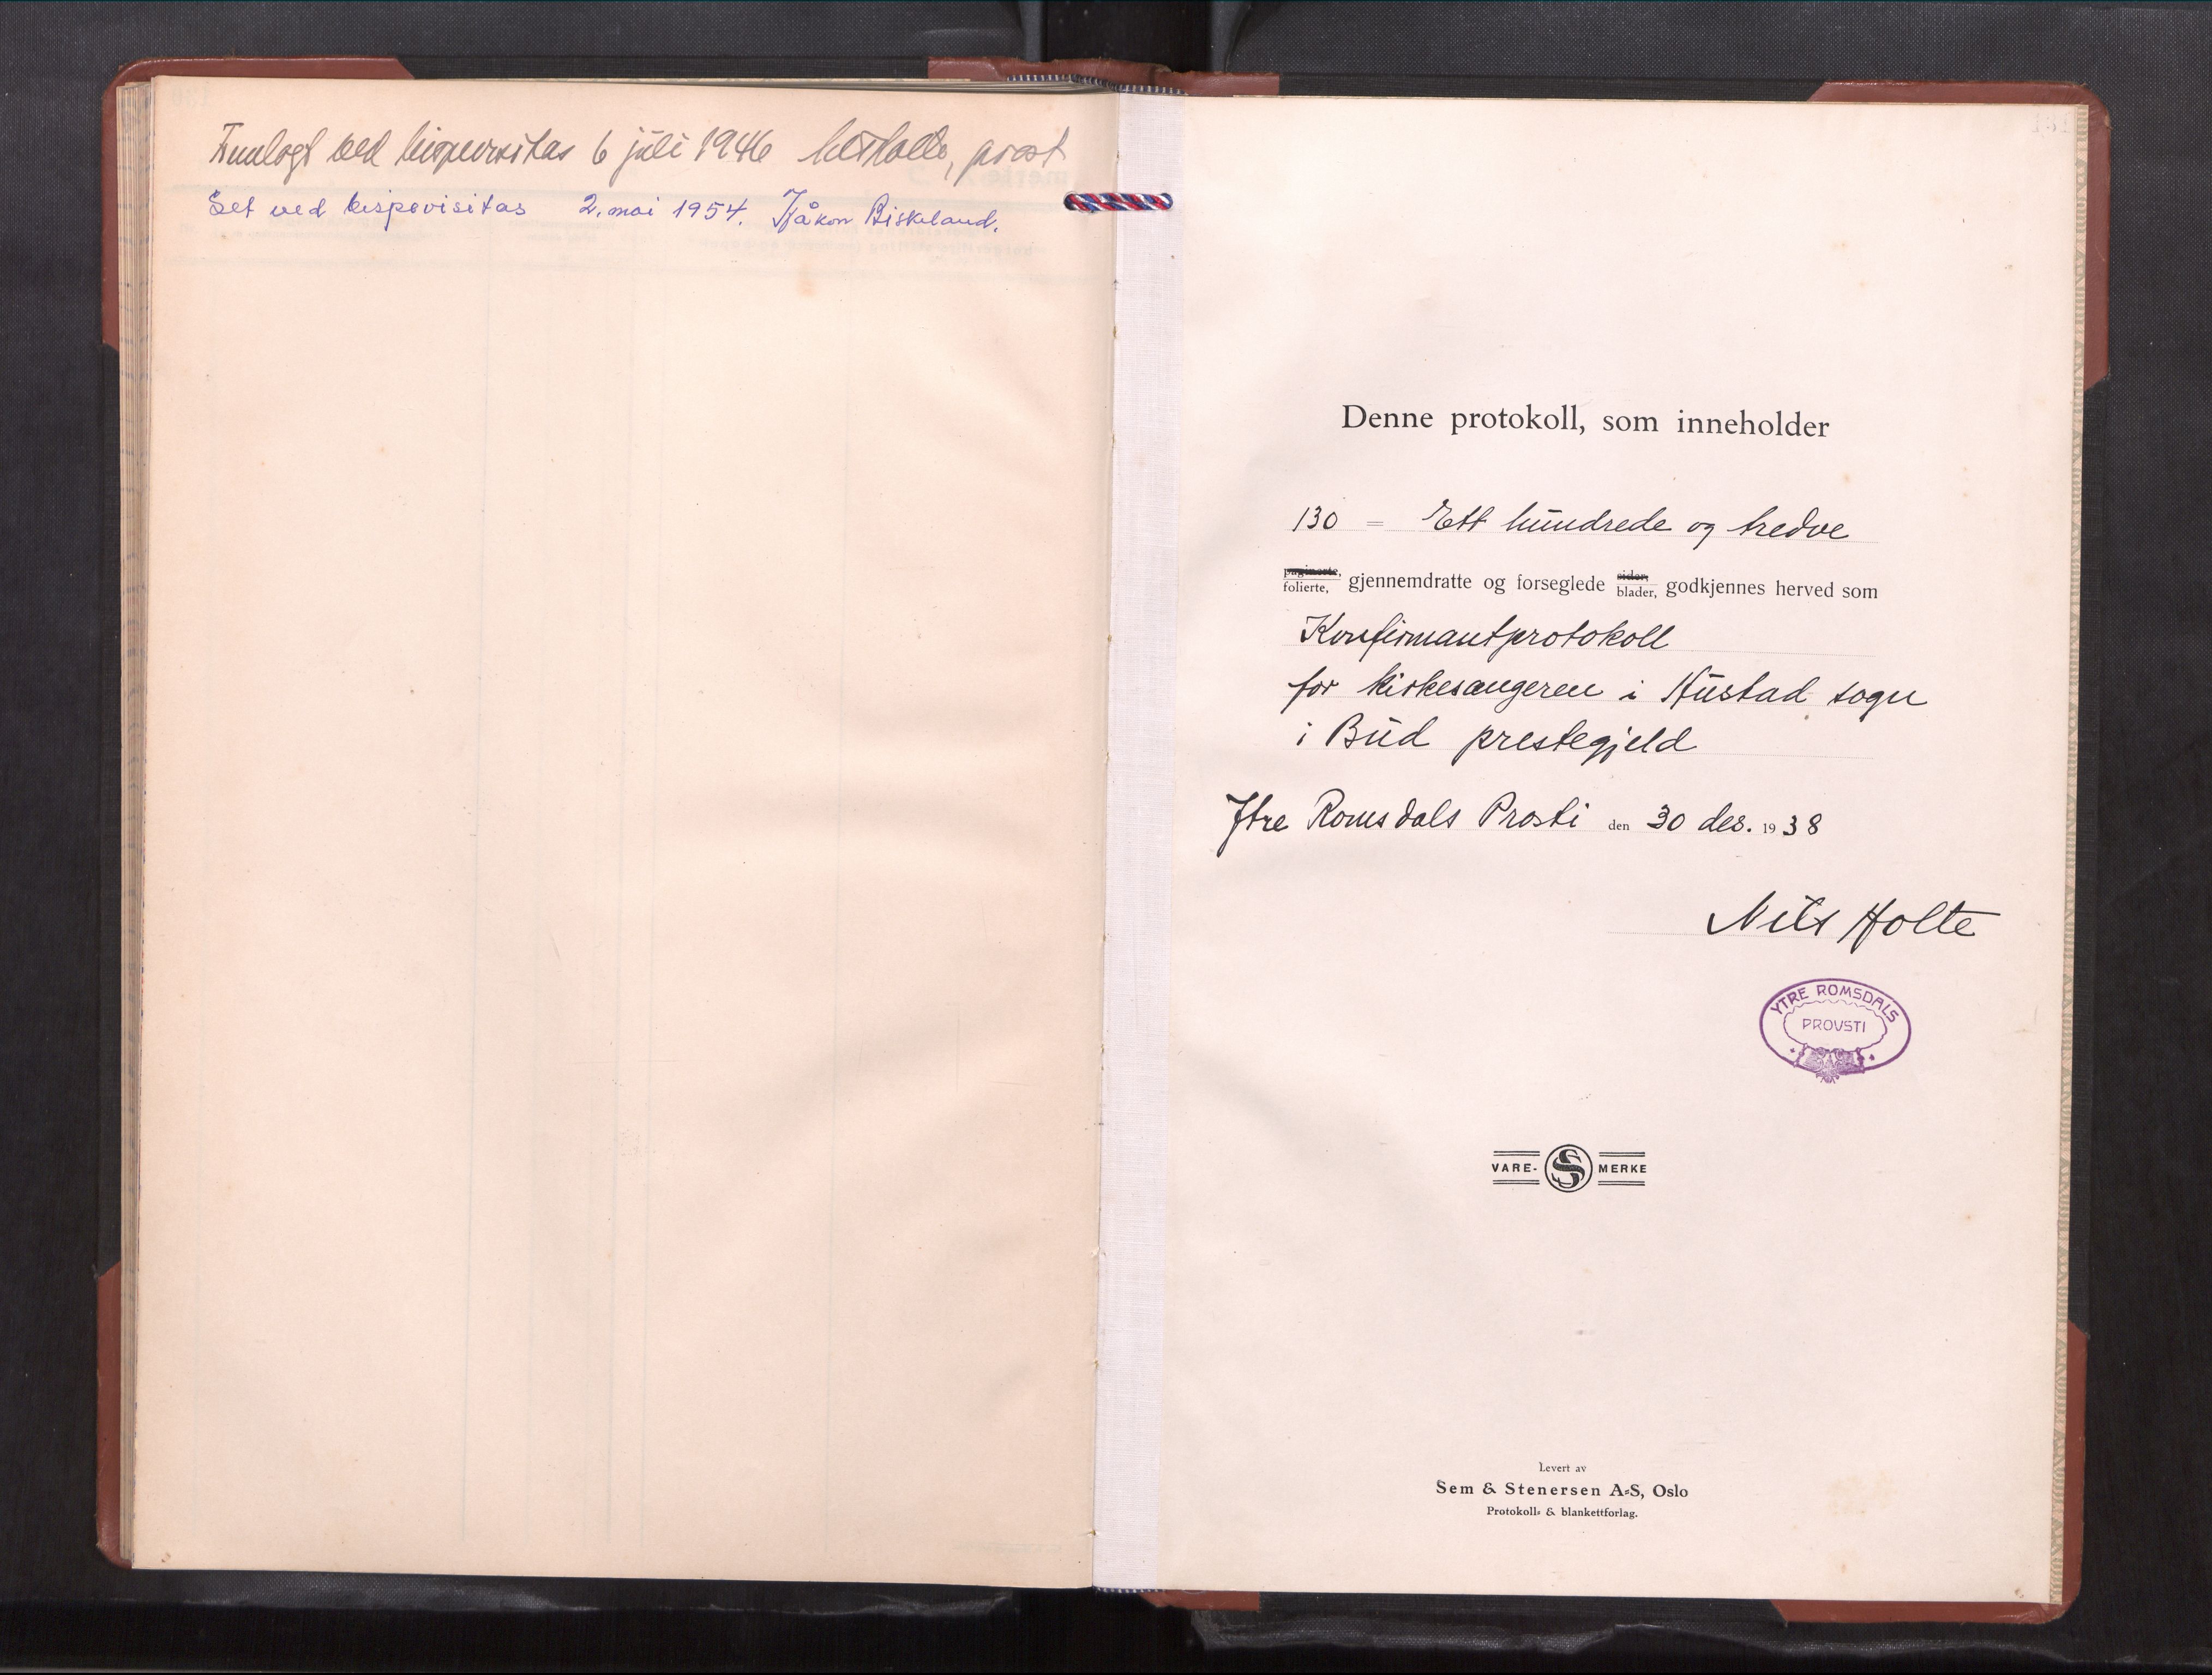 Fremlagt ved bispevisitas 6 juli 1946 Nils Holte, prost
Set ved bispevisitas 2. mai 1954. Håkon Biskeland.
Denne protokoll, som inneholder
130 = Ett hundrede og tredve
paginerte, folierte, gjennemdratte og forseglede sider, blader, godkjennes herved som
Konfirmantprotokoll
for kirkesangeren i Hustad sogn
i Bud prestegjeld
Ytre Romsdals Prosti den 30 des. 1938
Nils Holte
YTRE ROMSDALS
PROVSTI
VARE- S MERKE
Levert av
Sem & Stenersen A-S, Oslo
Protokoll- & blankettforlag.